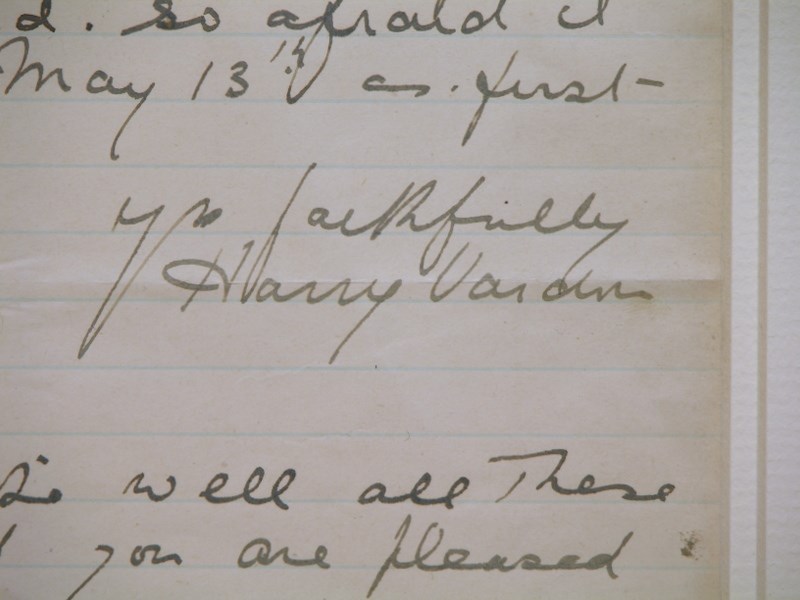 d. so afraid it
May 13th as. first-
Yrs faithfully
Harry Vardon
well all These
you are pleased